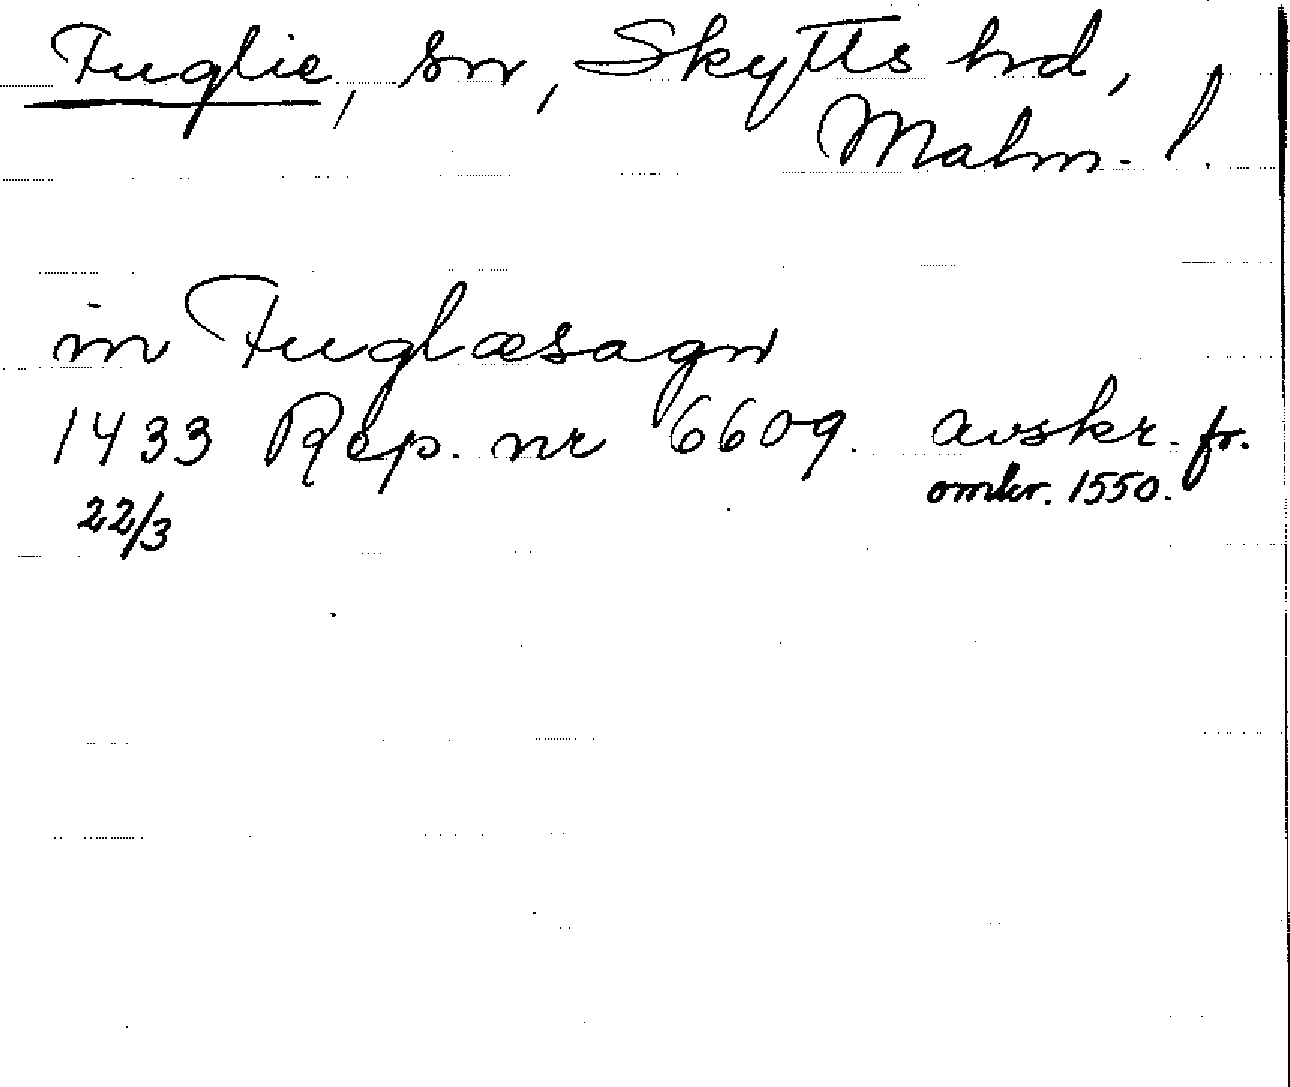 Fuglie, sn, Skytts hd,
Malm. l.
in Fuglæsagn
1433 Rep. nr 6609. avskr. fr.
22/3 omkr. 1550.